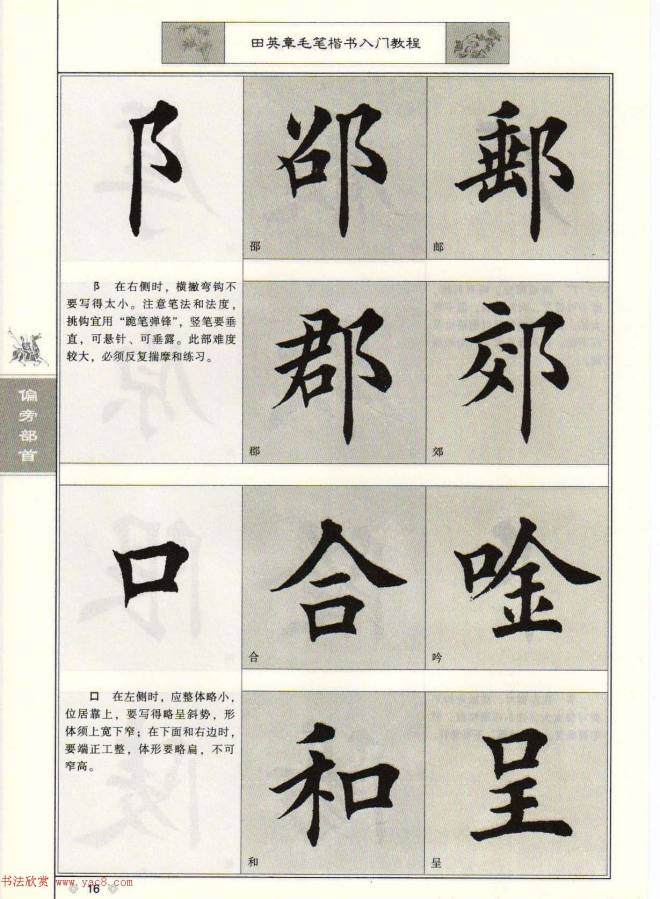 田英章毛笔楷书入门教程
阝 邵 郵
邵 邮
阝 在右侧时，横撇弯钩不
要写得太小。注意笔法和法度，
挑钩宜用“跪笔弹锋”，竖笔要垂
直，可悬针、可垂露。此部难度
较大，必须反复揣摩和练习。
郡 郊
郡 郊
偏旁部首
口 合 唫
合 吟
口 在左侧时，应整体略小，
位居靠上，要写得略呈斜势，形
体须上宽下窄；在下面和右边时，
要端正工整，体形要略扁，不可
窄高。
和 呈
和 呈
书法欣赏 www.yac8.com
16